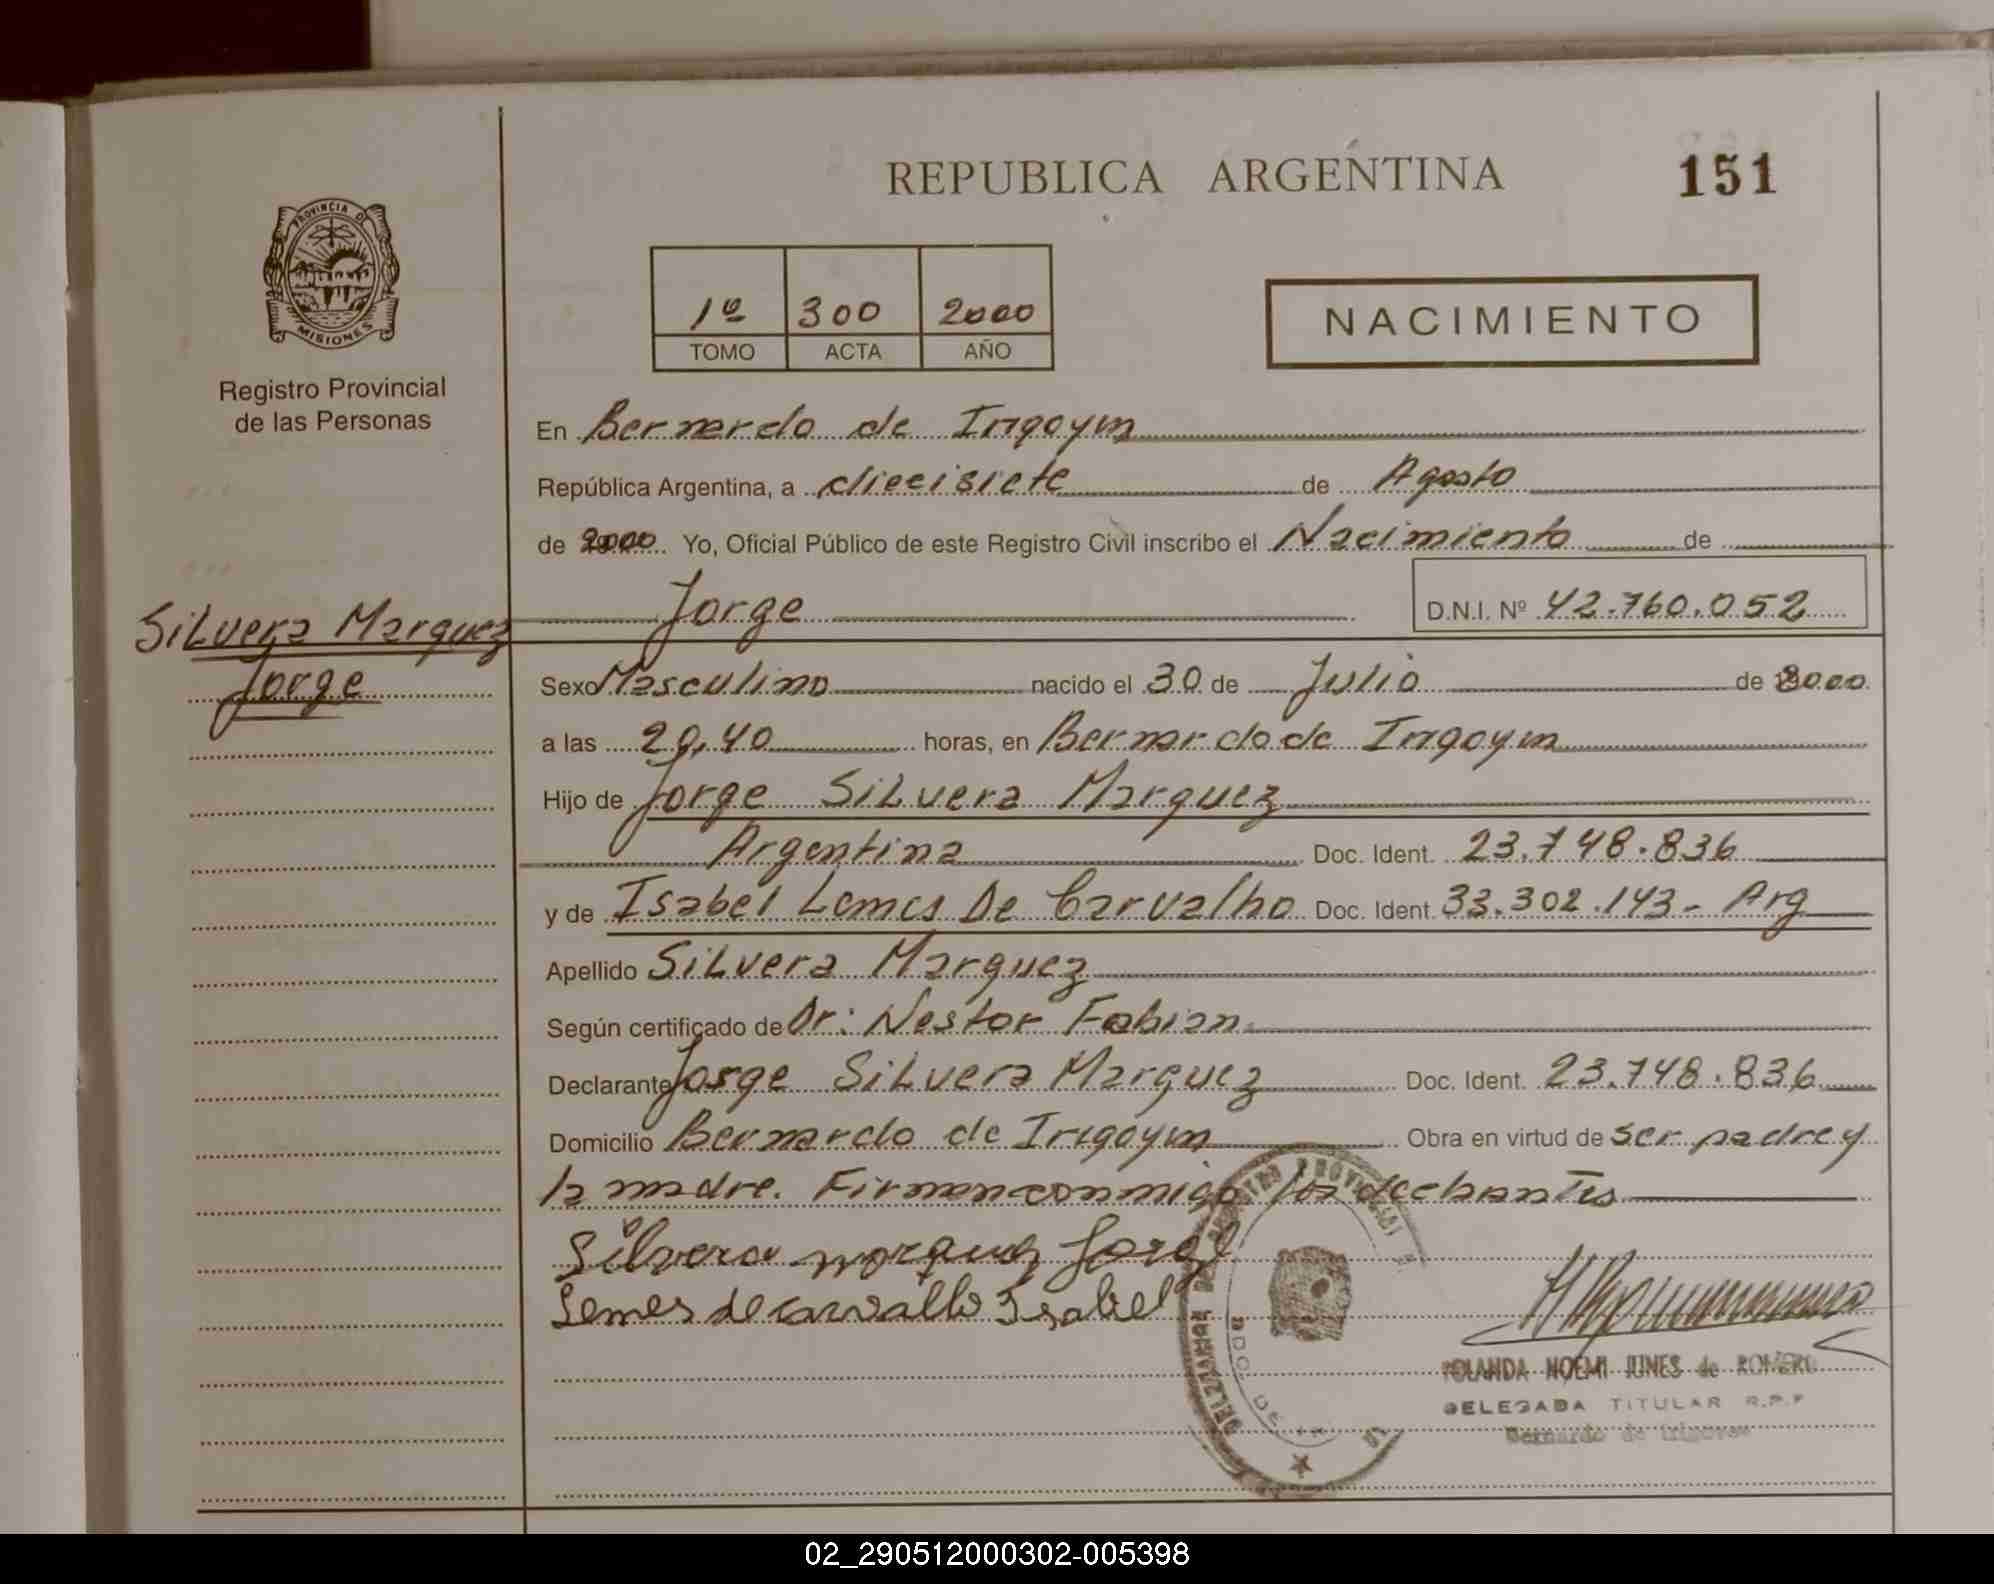 REPUBLICA ARGENTINA
151
PROVINCIA DE
MISIONES
Registro Provincial
de las Personas
1º 300 2000
TOMO ACTA AÑO
NACIMIENTO
En Bernardo de Irigoyen
República Argentina, a diecisiete de Agosto
de 2000 Yo, Oficial Público de este Registro Civil inscribo el Nacimiento de
Jorge D.N.I. Nº 42.760.052
Silvera Marquez
Jorge
Sexo Masculino nacido el 30 de Julio de 2000
a las 20,40 horas, en Bernardo de Irigoyen
Hijo de Jorge Silvera Marquez
Argentina Doc. Ident. 23.748.836
y de Isabel Lemes De Carvalho Doc. Ident. 33.302.143- Arg
Apellido Silvera Marquez
Según certificado de Dr: Nestor Fabian
Declarante Jorge Silvera Marquez Doc. Ident. 23.748.836
Domicilio Bernardo de Irigoyen Obra en virtud de ser padre y
la madre. Firman conmigo los declarantes
Silvera marquez Jorge
Lemes de carvallo Isabel
YOLANDA NOEMI JUNES de ROMERO
DELEGADA TITULAR R.P.P
Bernardo de Irigoyen
02_290512000302-005398